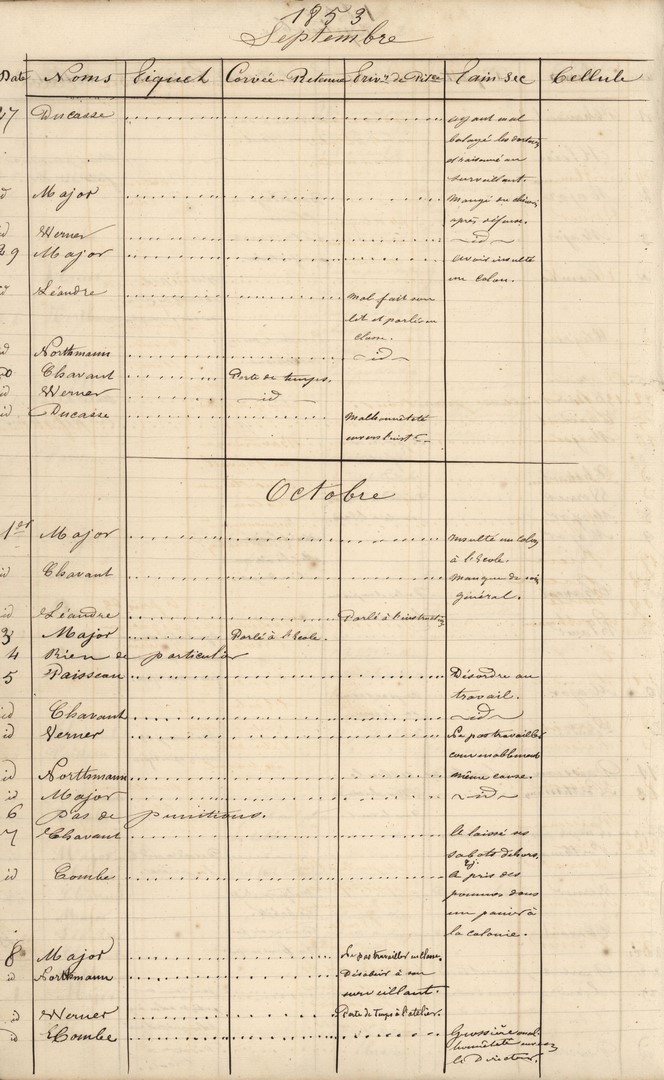 1853
Septembre
Date Noms Piquet Corvée Retenue Priv.on de Récr.on Pain sec Cellule
27 Ducasse ayant mal
balayé les dortoirs
et raisonné au
surveillant.
id Major Mangé en chemin
après défense.
id Werner id
29 Major Avoir insulté
un colon.
id Léandre Mal fait son
lit et parlé en
classe.
id Northmann id
Chavant Perte de temps.
id Werner id
id Ducasse Malhonnêteté
envers l'inst.
Octobre
1er Major Insulté un colon
à l'Ecole.
id Chavant Manque de soin
général.
id Léandre Parlé à l'instruction
3 Major Parlé à l'Ecole.
4 Rien de particulier
5 Paisseau Désordre au
travail.
id Chavant id
id Verner Ne pas travailler
convenablement
id Northmann même cause.
id Major id
6 Pas de punitions.
7 Chavant A laissé ses
sabots dehors.
id Combe A pris des
pommes dans
un panier à
la colonie.
8 Major Ne pas travailler en classe.
id Northmann Désobéir à son
surveillant.
id Werner Perte de temps à l'atelier.
id Combe Grossière mal
honnêteté envers
le Directeur.